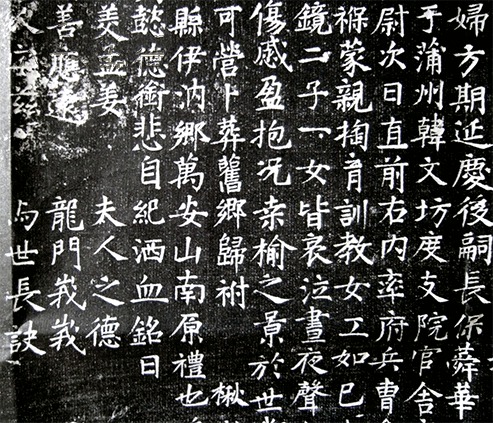 婦方期延慶後嗣長保蕣華
于蒲州韓文坊度支院官舍
尉次日直前右内率府兵曹
褓蒙親掏育訓教女工如已
鏡二子一女皆哀泣晝夜聲
傷感盈抱况桒榆之景於世
可營卜葬舊鄉歸祔 楸
縣伊汭鄉萬安山南原禮也
懿德銜悲自紀洒血銘曰
美孟姜 夫人之德
善應 龍門峩峩
兹 与世長訣